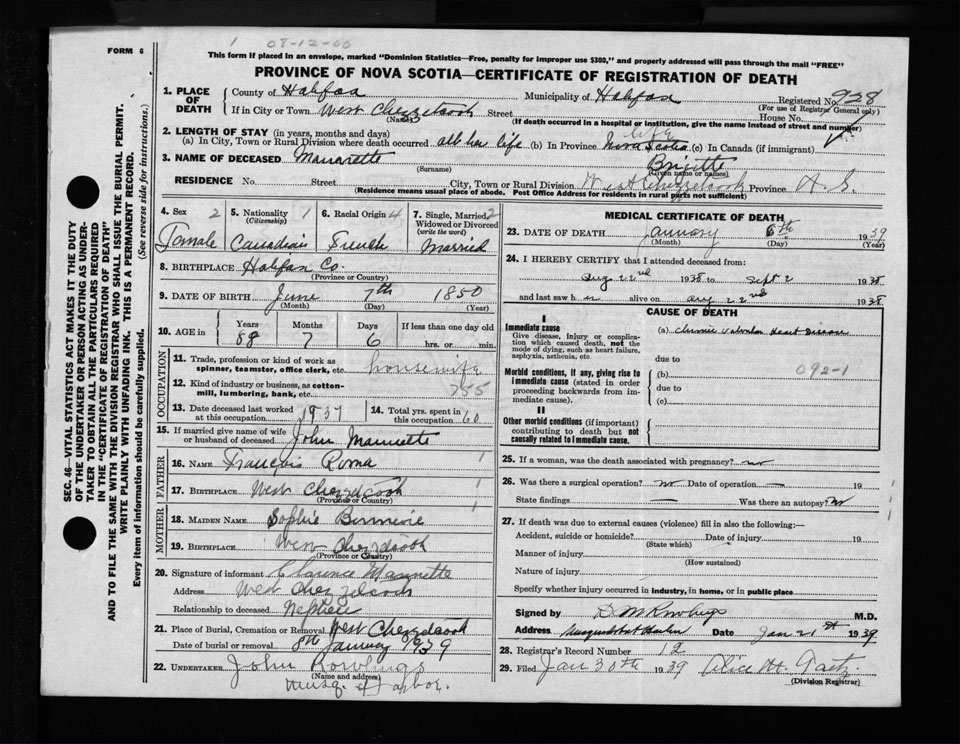 FORM 6
1 08-12-00
This form if placed in an envelope, marked "Dominion Statistics—Free, penalty for improper use $300," and properly addressed will pass through the mail "FREE"
PROVINCE OF NOVA SCOTIA—CERTIFICATE OF REGISTRATION OF DEATH
1. PLACE OF DEATH
County of Halifax Municipality of Halifax Registered No. 928
(For use of Registrar General only)
If in City or Town West Chezzetcook Street House No.
(Name)
(If death occurred in a hospital or institution, give the name instead of street and number)
2. LENGTH OF STAY (in years, months and days)
(a) In City, Town or Rural Division where death occurred all her life (b) In Province life Nova Scotia (c) In Canada (if immigrant)
3. NAME OF DECEASED Mannette Brigitte
(Surname) (Given name or names)
RESIDENCE No. Street City, Town or Rural Division West Chezzetcook Province N.S.
(Residence means usual place of abode. Post Office Address for residents in rural parts not sufficient)
4. Sex 2 Female
5. Nationality (Citizenship) 1 Canadian
6. Racial Origin 4 French
7. Single, Married, Widowed or Divorced (write the word) 2 Married
8. BIRTHPLACE Halifax Co
(Province or Country)
9. DATE OF BIRTH June 7th 1850
(Month) (Day) (Year)
10. AGE in Years 88 Months 7 Days 6 If less than one day old hrs. or min.
OCCUPATION
11. Trade, profession or kind of work as spinner, teamster, office clerk, etc. housewife
12. Kind of industry or business, as cotton-mill, lumbering, bank, etc. 755
13. Date deceased last worked at this occupation 1937
14. Total yrs. spent in this occupation 60
15. If married give name of wife or husband of deceased John Mannette
FATHER
16. NAME Francois Roma
17. BIRTHPLACE West Chezzdcook
(Province or Country)
MOTHER
18. MAIDEN NAME Sophie
19. BIRTHPLACE West Chezzdcook
(Province or Country)
20. Signature of informant Clarence Mannette
Address West Chezzetcook
Relationship to deceased Nephew
21. Place of Burial, Cremation or Removal West Chezzdcook
Date of burial or removal 8th January 1939
22. UNDERTAKER John Rowlings
(Name and address)
Musq. Harbor.
MEDICAL CERTIFICATE OF DEATH
23. DATE OF DEATH January 6th 1939
(Month) (Day) (Year)
24. I HEREBY CERTIFY that I attended deceased from:
Aug 22nd 1938 to Sept 2 1938
and last saw her alive on Aug 22nd 1938
CAUSE OF DEATH
I
Immediate cause
Give disease, injury or complication which caused death, not the mode of dying, such as heart failure, asphyxia, asthenia, etc.
(a) Chronic Valvular Heart Disease
due to
Morbid conditions, if any, giving rise to immediate cause (stated in order proceeding backwards from immediate cause).
(b) 092-1
due to
(c)
II
Other morbid conditions (if important) contributing to death but not causally related to immediate cause.
25. If a woman, was the death associated with pregnancy? no
26. Was there a surgical operation? no Date of operation — 19
State findings — Was there an autopsy? no
27. If death was due to external causes (violence) fill in also the following:—
Accident, suicide or homicide? Date of injury 19
(State which)
Manner of injury
(How sustained)
Nature of injury
Specify whether injury occurred in industry, in home, or in public place
Signed by D M Rowlings M.D.
Address Musquodoboit Harbor Date Jan 21st 1939
28. Registrar's Record Number 12
29. Filed Jan 30th 1939 Alice M. Gaetz
(Division Registrar)
SEC. 46—VITAL STATISTICS ACT MAKES IT THE DUTY
OF THE UNDERTAKER OR PERSON ACTING AS UNDER-
TAKER TO OBTAIN ALL THE PARTICULARS REQUIRED
IN THE "CERTIFICATE OF REGISTRATION OF DEATH"
AND TO FILE THE SAME WITH THE DIVISION REGISTRAR WHO SHALL ISSUE THE BURIAL PERMIT.
WRITE PLAINLY WITH UNFADING INK. THIS IS A PERMANENT RECORD.
Every item of information should be carefully supplied. (See reverse side for instructions.)